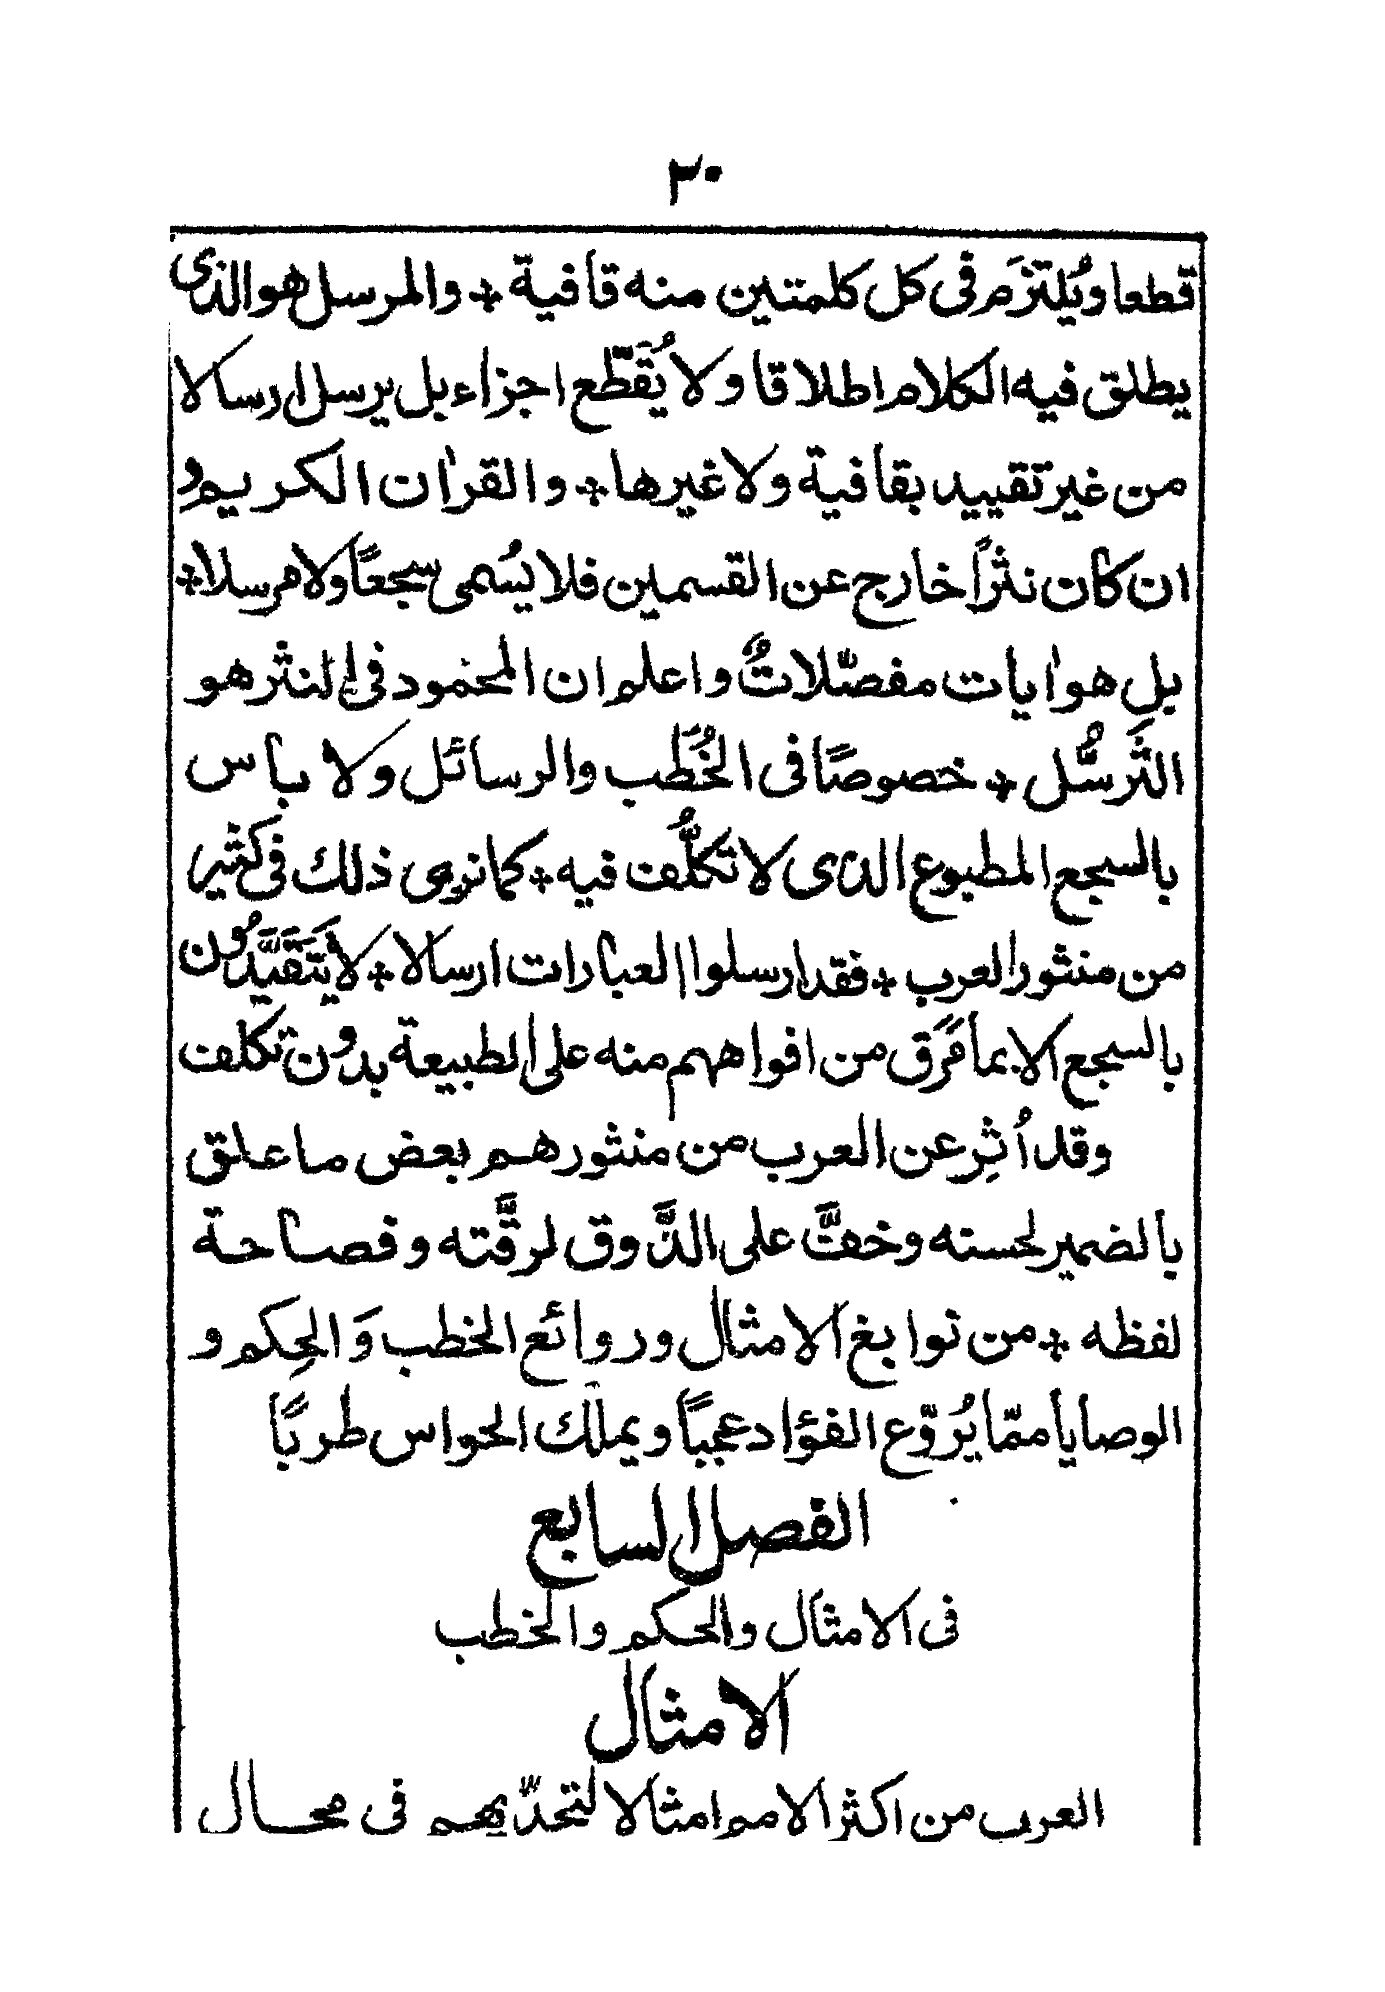 ٣٠
قطعا ويُلتزَم فى كل كلمتين منه قافية ۞ والمرسل هو الذى
يطلق فيه الكلام اطلاقا ولا يُقَطّع اجزاء بل يرسل ارسالا
من غير تقييد بقافية ولا غيرها ۞ والقران الكريم و
ان كان نثراً خارج عن القسمين فلا يسُمى سجعًا ولا مرسلا ۞
بل هو ايات مفصّلاتٌ واعلم ان المحمود فى النثر هو
التَرسُّل ۞ خصوصًا فى الخُطَب والرسائل ولا باس
بالسجع المطبوع الذى لا تكلُّف فيه ۞ كما نرى ذلك فى كثير
من منثور العرب ۞ فقد ارسلوا العبارات ارسالا ۞ لا يَتَقَيَّدُون
بالسجع الا بما مَرَق من افواههم منه على الطبيعة بدون تكلف
وقد اُثِر عن العرب من منثورهم بعض ما علق
بالضمير لحسنه وخفَّ على الذَّوق لرقَّته وفصاحة
لفظه ۞ من نوابغ الامثال وروائع الخطب وَالحِكم و
الوصايا ممّا يُروّع الفؤاد عجبًا ويملك الحواس طربًا
الفصل السابع
فى الامثال والحكم والخطب
الامثال
العرب من اكثر الامم امثالا لتحدّيهم فى مجال